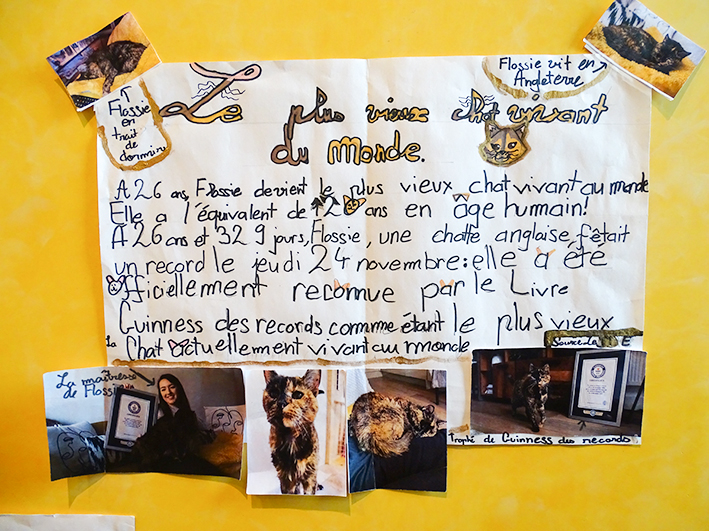 Flossie vit en
Angleterre
Flossie
en
trait de
dormir
Le plus vieux chat vivant
du monde.
A 26 ans, Flossie devient le plus vieux chat vivant au monde
Elle a l'équivalent de 120 ans en âge humain!
A 26 ans et 329 jours, Flossie, une chatte anglaise, fêtait
un record le jeudi 24 novembre: elle a été
officiellement reconnue par le Livre
Guinness des records comme étant le plus vieux
Chat actuellement vivant au monde
Source: La
La maîtresse
de Flossie
Trophé de Guinness des records